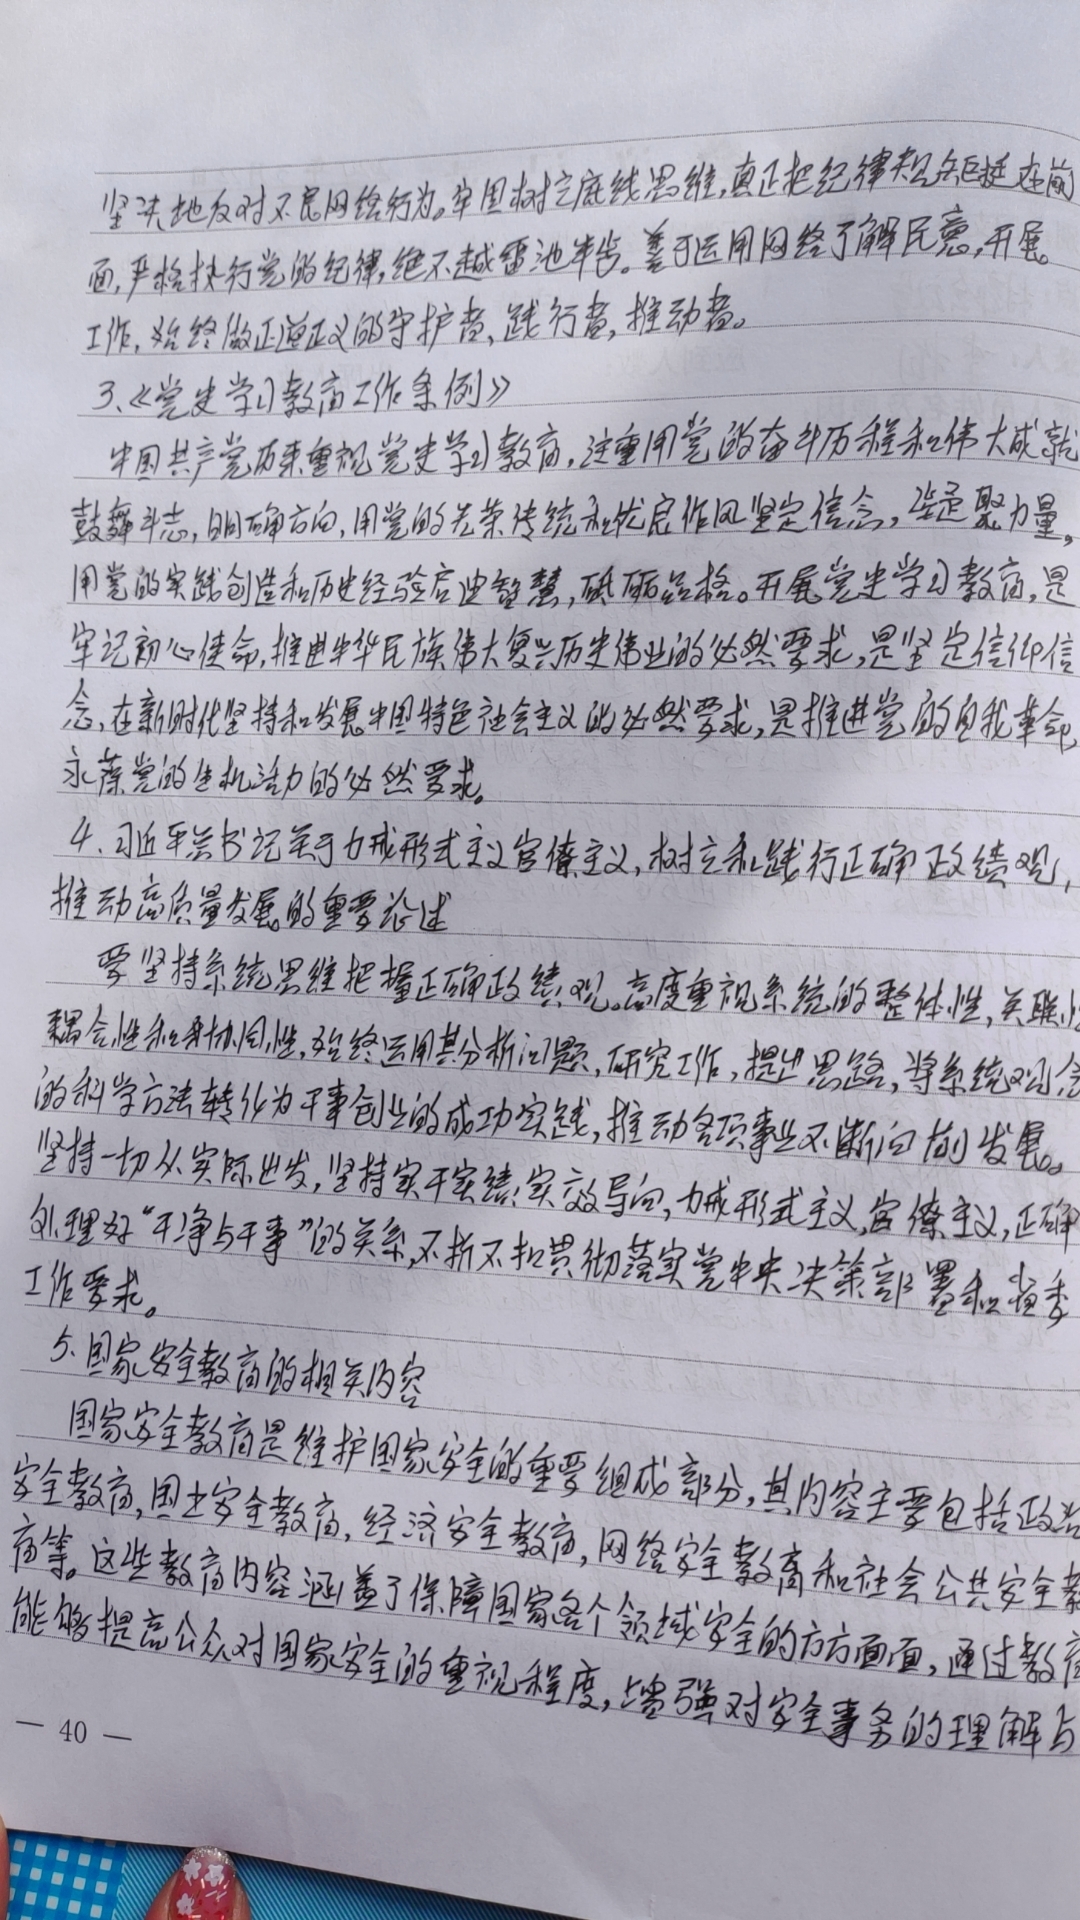 坚决地反对不良网络行为。牢固树立底线思维,真正把纪律规矩挺在前
面,严格执行党的纪律,绝不越雷池半步。善于运用网络了解民意,开展
工作,始终做正道正义的守护者,践行者,推动者。
3、《党史学习教育工作条例》
中国共产党历来重视党史学习教育,注重用党的奋斗历程和伟大成就
鼓舞斗志,明确方向,用党的光荣传统和优良作风坚定信念,凝聚力量,
用党的实践创造和历史经验启迪智慧,砥砺品格。开展党史学习教育,是
牢记初心使命,推进中华民族伟大复兴历史伟业的必然要求,是坚定信仰信
念,在新时代坚持和发展中国特色社会主义的必然要求,是推进党的自我革命,
永葆党的生机活力的必然要求。
4、习近平总书记关于力戒形式主义官僚主义,树立和践行正确政绩观,
推动高质量发展的重要论述
要坚持系统思维把握正确政绩观。高度重视系统的整体性,关联性
耦合性和协同性,始终运用其分析问题,研究工作,提出思路,将系统观念
的科学方法转化为干事创业的成功实践,推动各项事业不断向前发展。
坚持一切从实际出发,坚持实干实绩实效导向,力戒形式主义,官僚主义,正确
处理好“干净与干事”的关系,不折不扣贯彻落实党中央决策部署和省委
工作要求。
5、国家安全教育的相关内容
国家安全教育是维护国家安全的重要组成部分,其内容主要包括政治
安全教育,国土安全教育,经济安全教育,网络安全教育和社会公共安全教
育等。这些教育内容涵盖了保障国家各个领域安全的方方面面,通过教育
能够提高公众对国家安全的重视程度,增强对安全事务的理解与
— 40 —